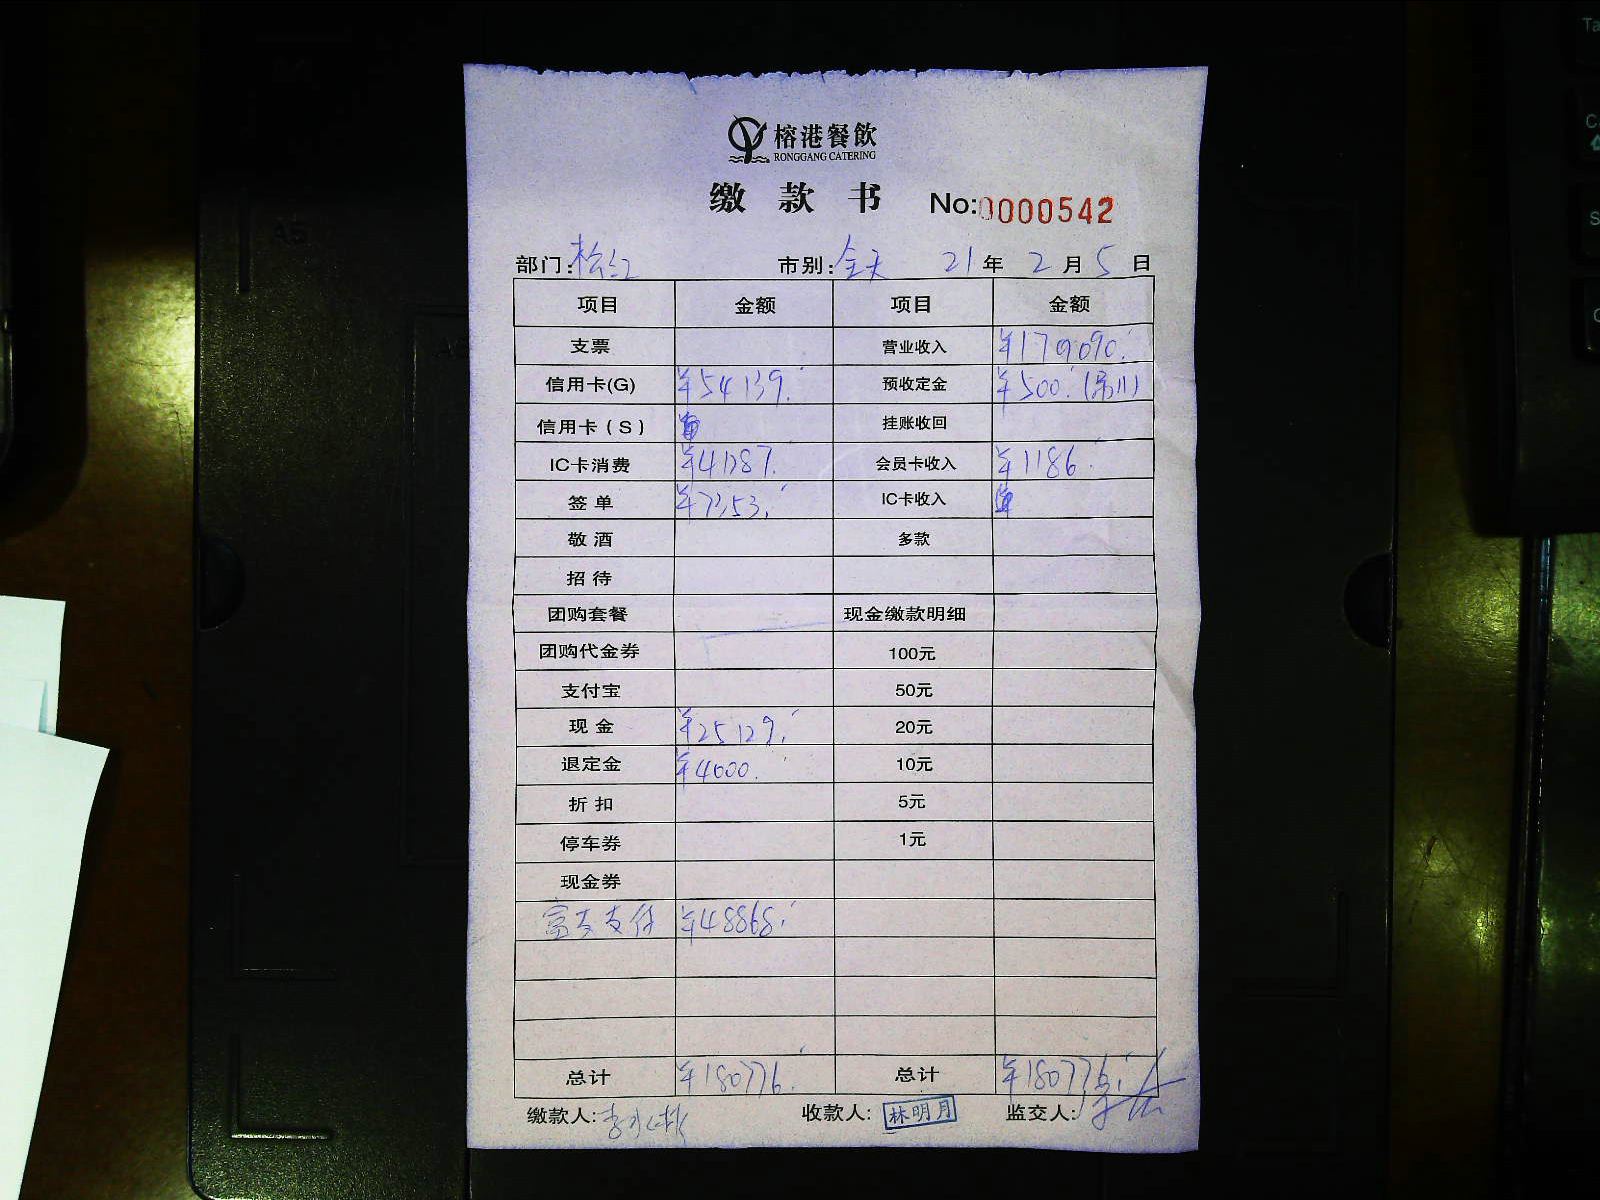 榕港餐飲
RONGGANG CATERING
缴 款 书 No:0000542
部门:松江 市别:全天 21年2月5日
项目 金额 项目 金额
支票 营业收入 ¥179090.
信用卡(G) ¥54139. 预收定金 ¥500.
信用卡(S) 挂账收回
IC卡消费 ¥41287. 会员卡收入 ¥1186.
签单 ¥7353. IC卡收入
敬酒 多款
招待
团购套餐 现金缴款明细
团购代金券 100元
支付宝 50元
现金 ¥25129. 20元
退定金 ¥4000. 10元
折扣 5元
停车券 1元
现金券
富友支付 ¥48868.
总计 ¥180776. 总计 ¥180776.
缴款人: 收款人: 林明月 监交人:
Ta